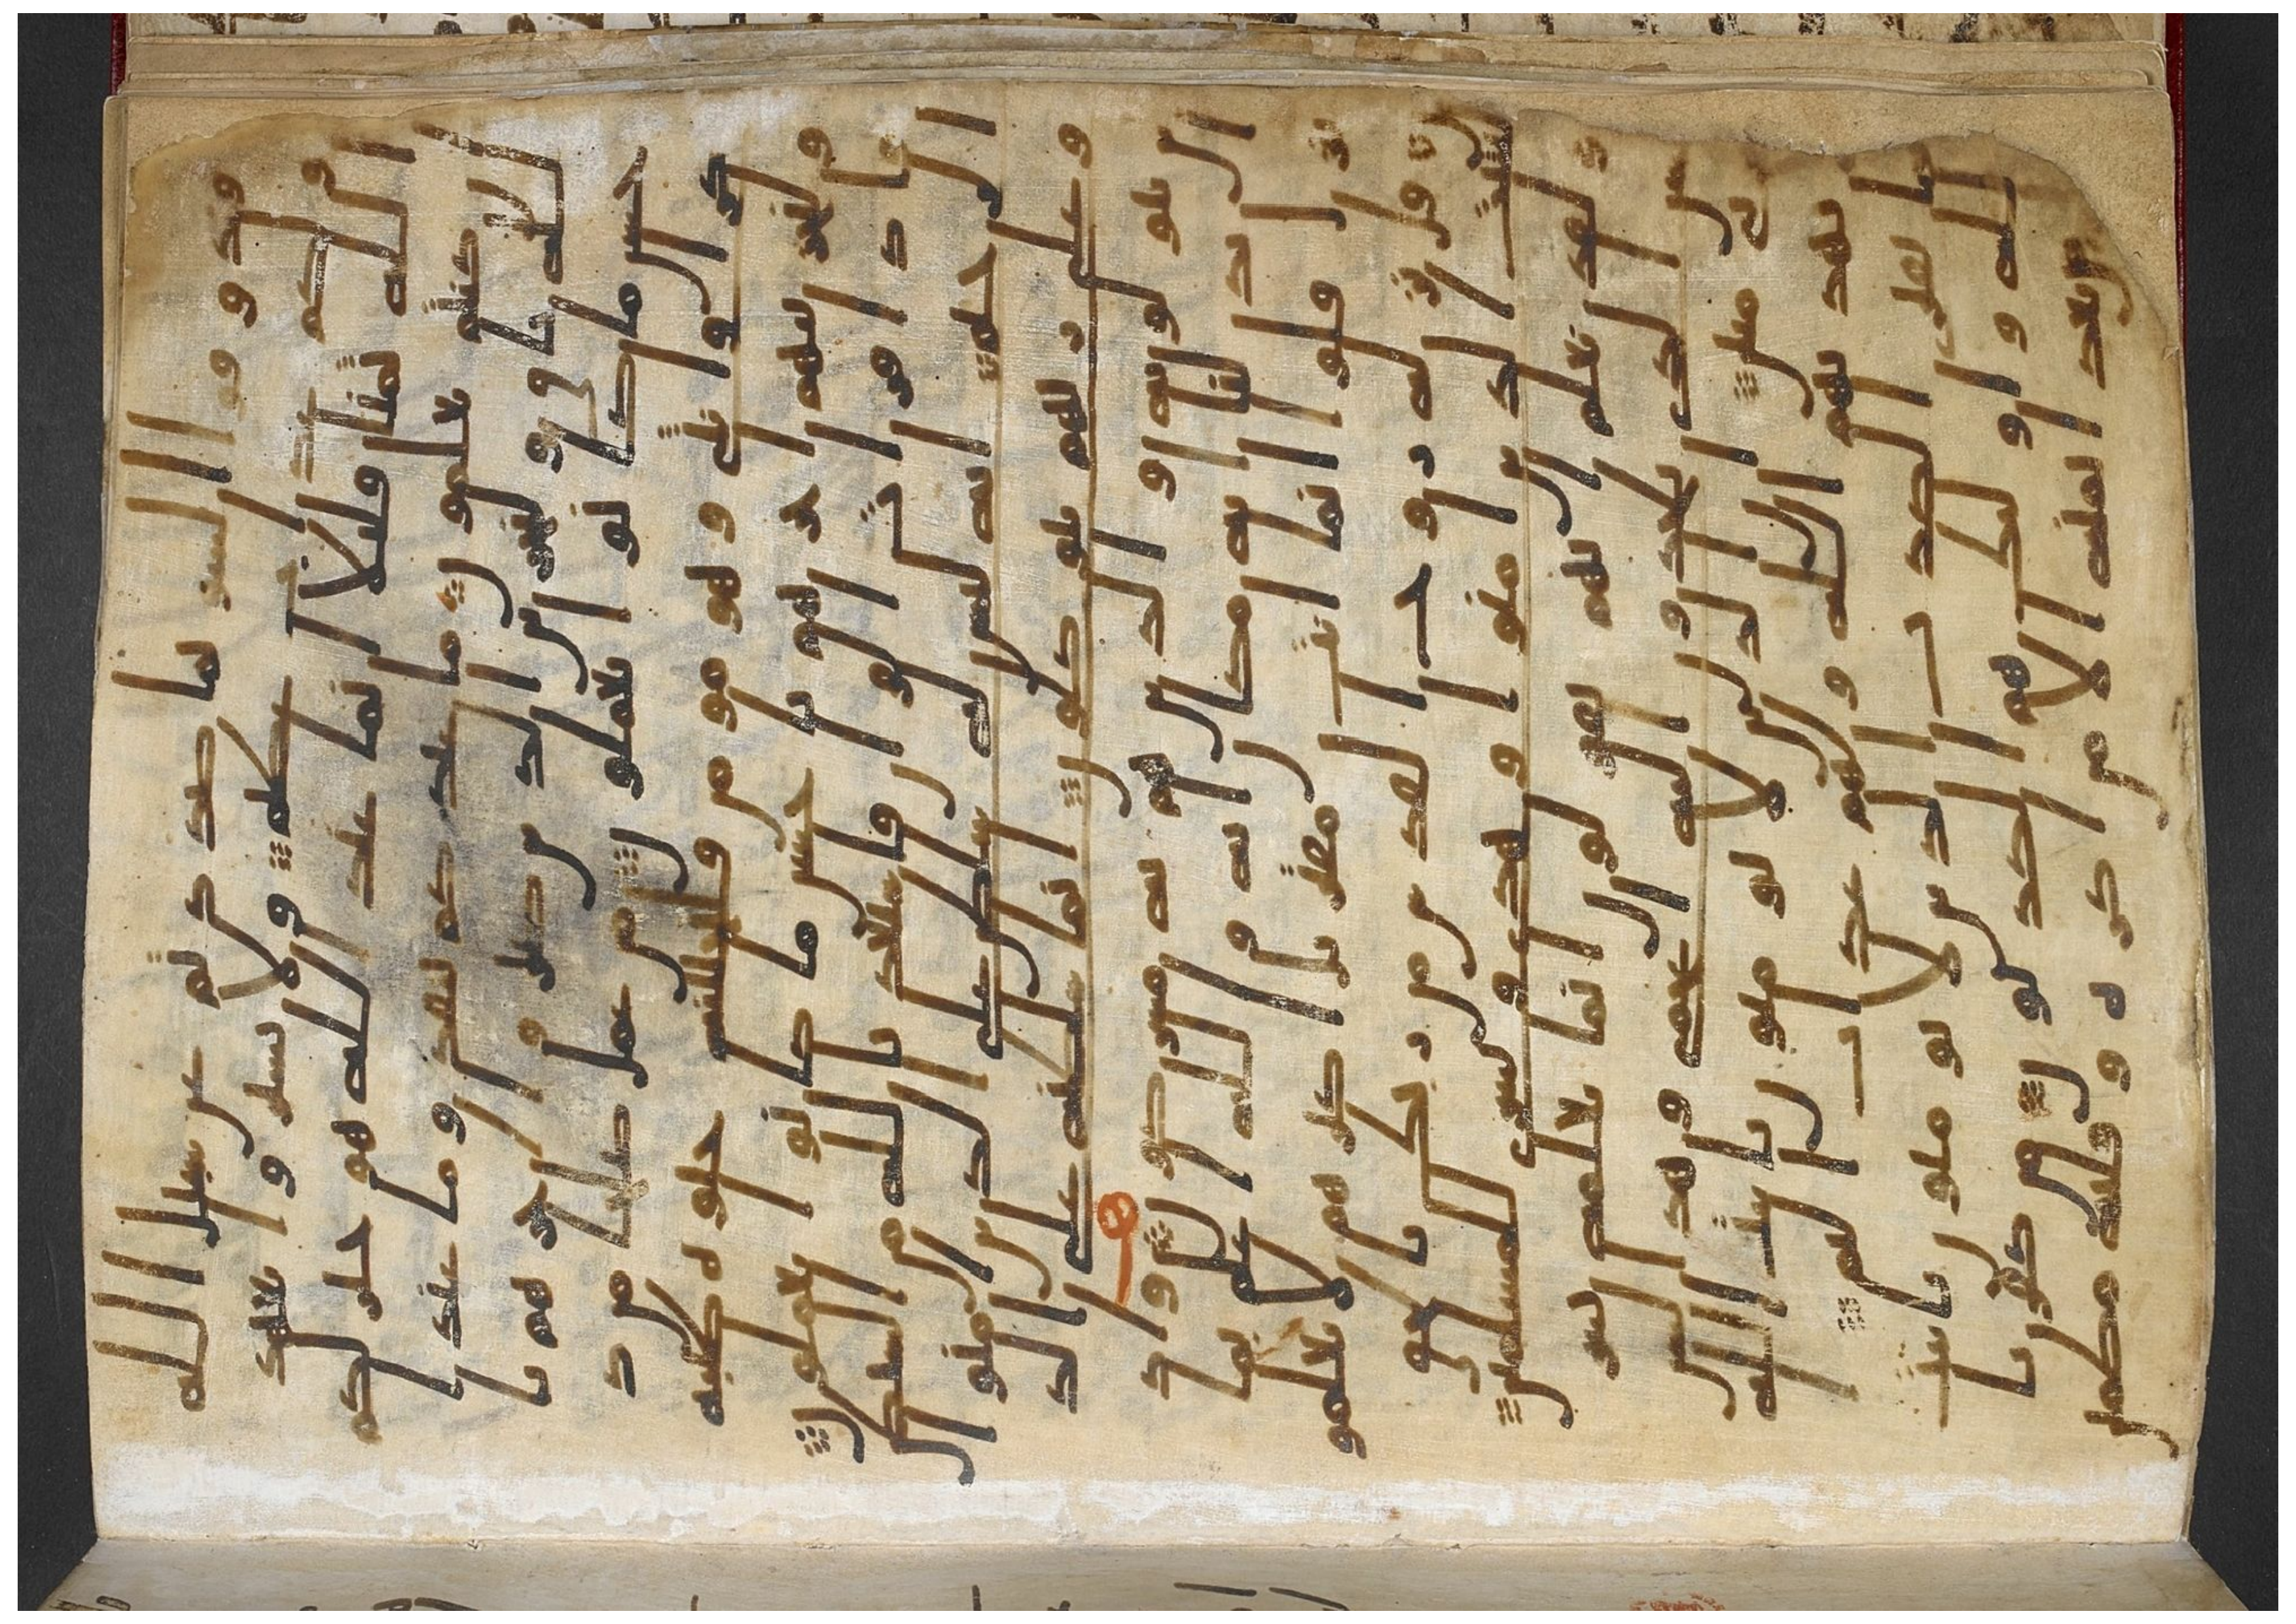 وتذوقوا السو بما صددتم عن سبيل الله
ولكم عذاب عظيم ولا تشتروا بعهد
الله ثمنا قليلا انما عند الله هو خير لكم
ان كنتم تعلمون ما عندكم ينفد وما عند ا
لله باق ولنجزين الذين صبروا اجرهم با
حسن ما كانوا يعملون من عمل صلحا من ذ
كر او انثى وهو مومن فلنحيينه حيوه طيبه
ولنجزينهم اجرهم باحسن ما كانوا يعملون
فاذا قرات القران فاستعذ بالله من الشيطن الر
جيم انه ليس له سلطن على الذين امنوا
وعلى ربهم يتوكلون انما سلطنه على الذ
ين يتولونه والذين هم به مشركون واذ
ا بدلنا ايه مكان ايه والله اعلم بما
ينزل قالوا انما انت مفتر بل اكثرهم لا يعلمو
ن قل نزله روح القدس من ربك بالحق
ليثبت الذين امنوا وهدى وبشرى للمسلمين
ولقد نعلم انهم يقولون انما يعلمه بشر
لسن الذي يلحدون اليه اعجمي وهذا لسن
عربي مبين ان الذين لا يومنون بايت الله
لا يهديهم الله ولهم عذاب اليم ا
نما يفتري الكذب الذين لا يومنون بايت
الله واولئك هم الكذبون من كفر با
من بعد ايمنه الا من اكره وقلبه مطمئن